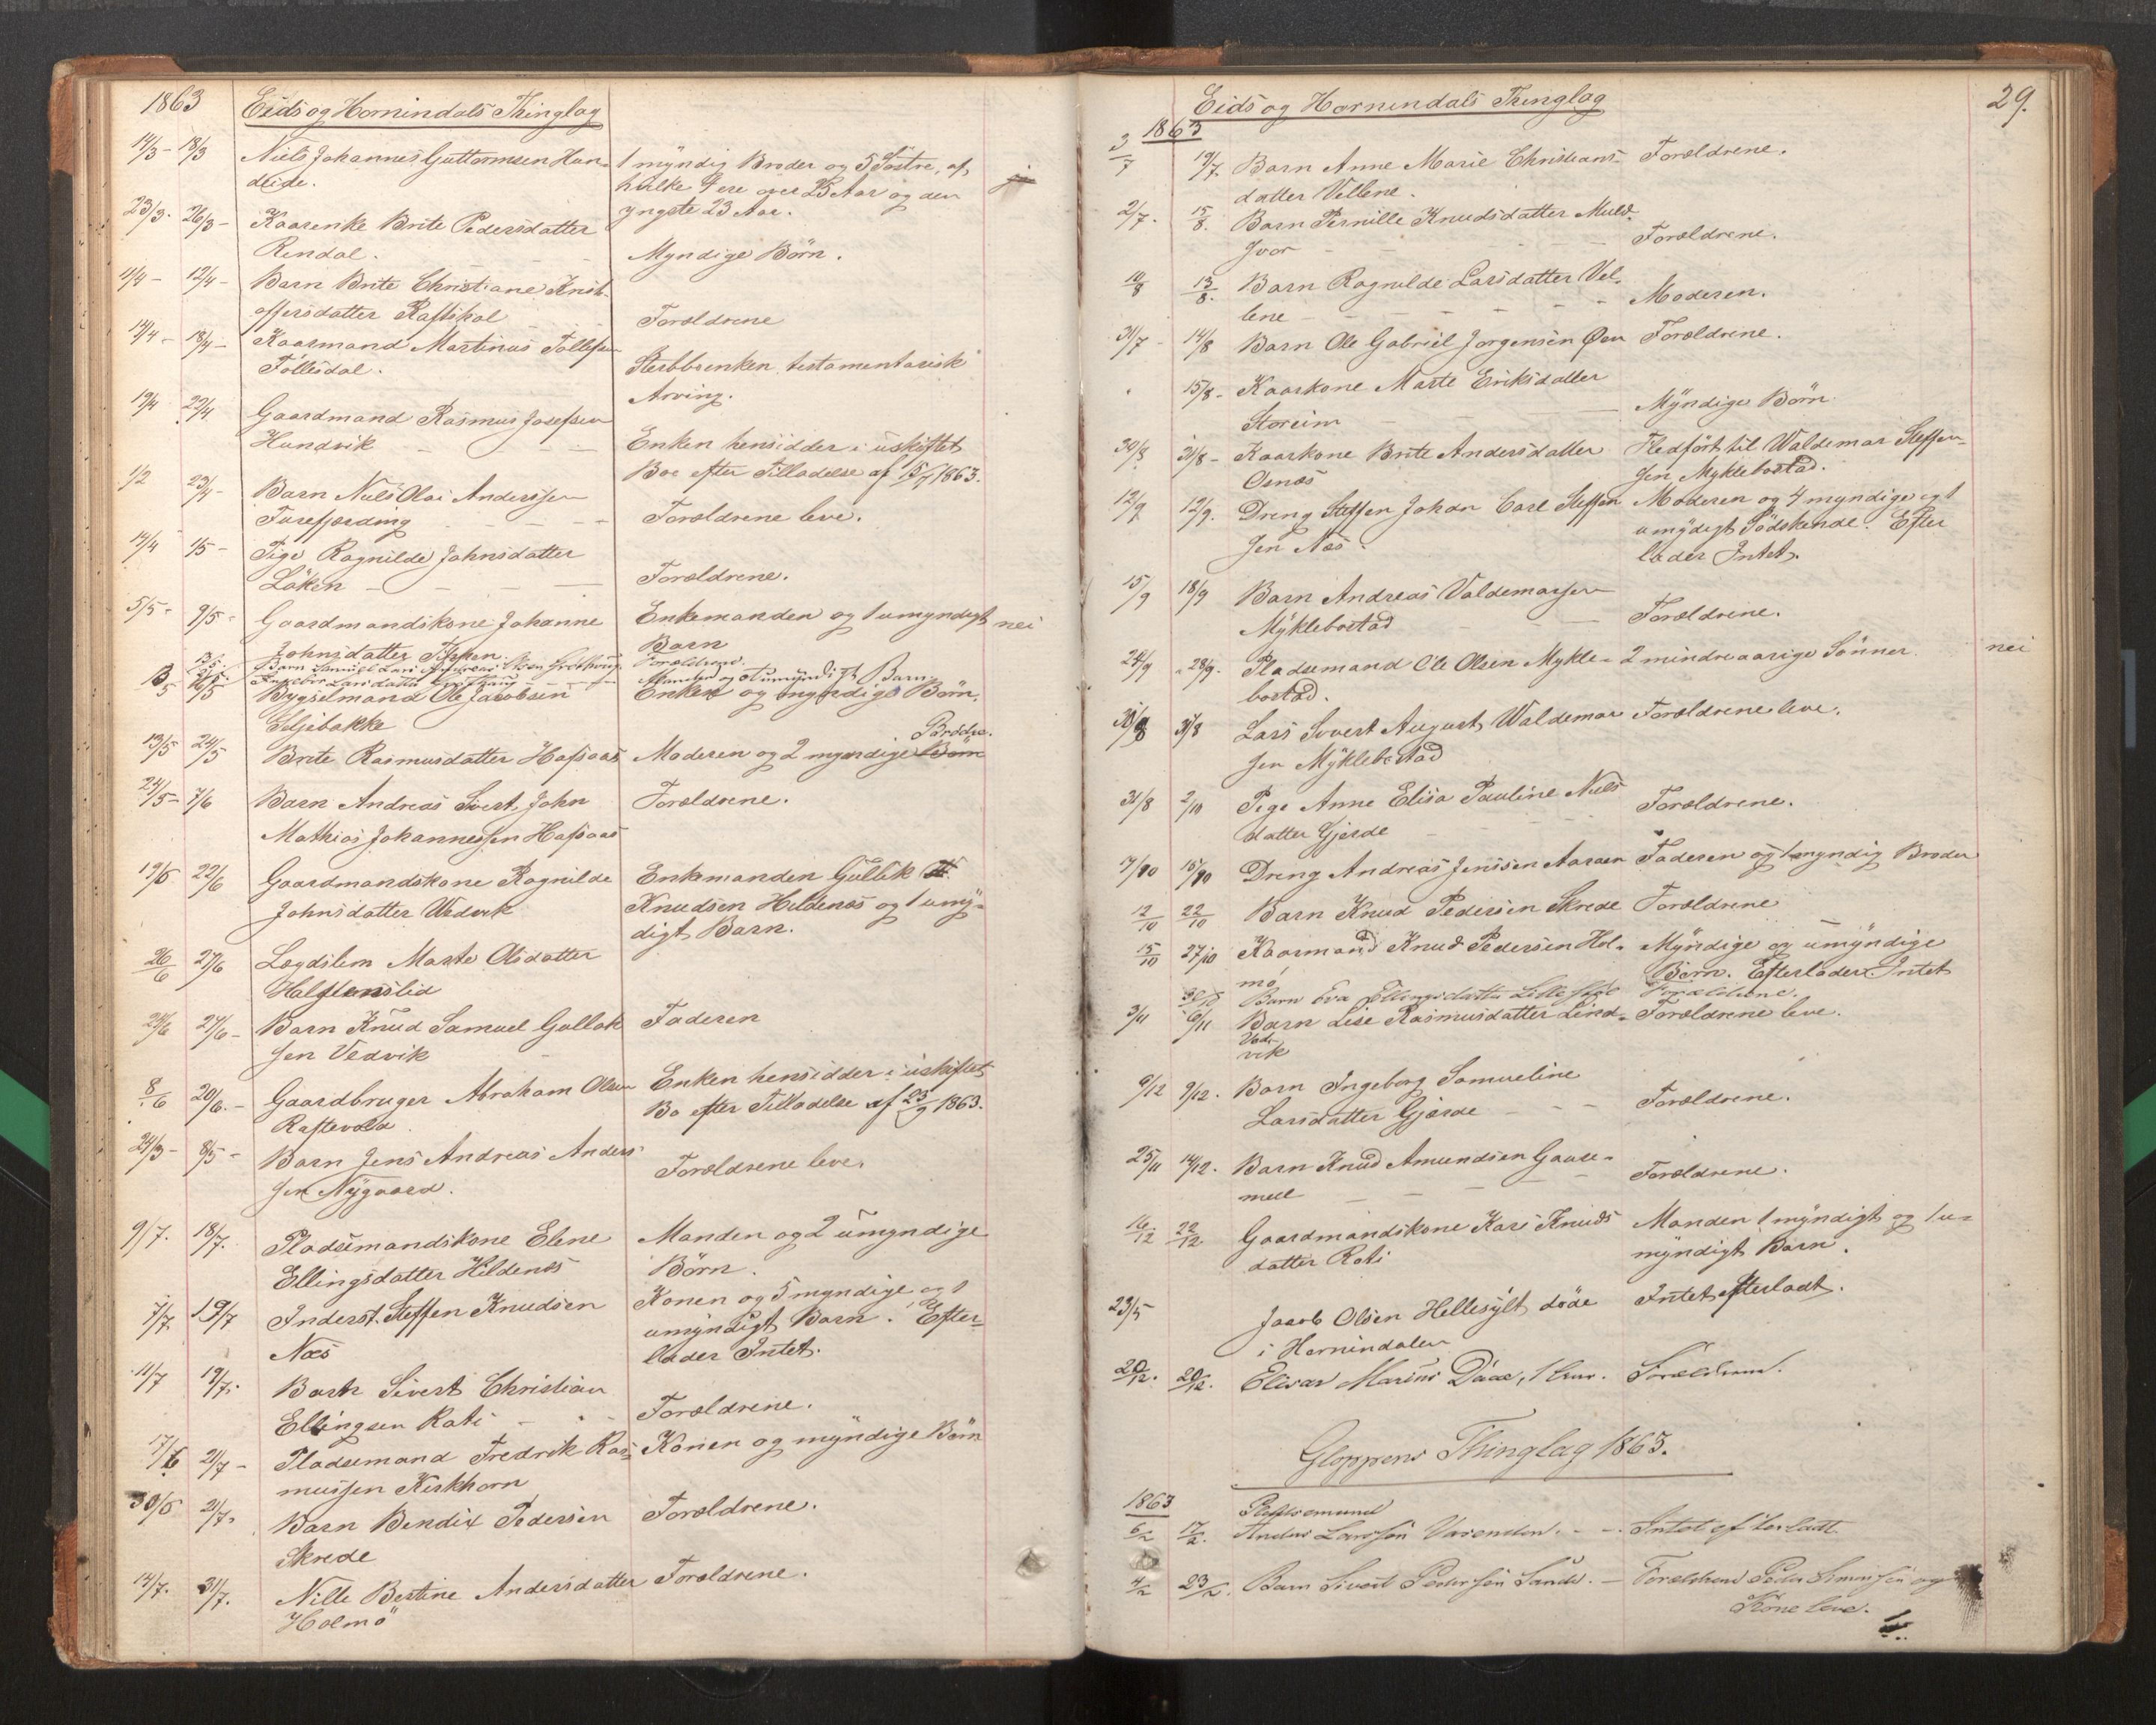 1863 Eids og Hornindals Thinglag
14/3 - 18/3 Niels Johannes Guttormsen Hun- 1 myndig Broder og 5 Søstre, af
deide. hvilke 4 ere over 25 Aar og den
yngste 23 Aar.
23/3. 26/3 - Kaarenke Brite Pedersdatter
Rendal. - - Myndige Børn.
4/4 - 12/4 - Barn Brite Christiane Krist-
offersdatter Raftshol - - Forældrene
14/4 - 18/4 - Kaarmand Martinus Tollefsen
Tollesdal. Sterbbrenken testamentarisk
Arving.
19/4 22/4 Gaardmand Rasmus Josefsen
Hundvik - - - Enken hensidder i uskiftet
Boe efter Tilladelse af 15/7 1863.
1/2 23/4 - Barn Niels Olai Anderssen
Furefjording - - - Forældrene leve.
14/4 1/5 - Pige Ragnilde Johnsdatter
Löken - - - Forældrene.
5/5 - 9/5 - Gaardmandskone Johanne Enkemanden og 1 umyndigt nei
Johnsdatter Barn
Barn Samuel Lars Forældrene
Larsdatter Manden og umyndigt Barn
13/5 16/5 Bygselmand Ole Jacobsen Enken og myndige Børn.
Seljebakke
Brødre.
13/5 24/5 Brite Rasmusdatter Hafsaas Moderen og 2 myndige Børn
24/5 - 7/6 Barn Andreas Sivert John Forældrene.
Mathias Johannessen Hafsaas
19/5 22/6 Gaardmandskone Ragnilde Enkemanden Gullik
Johnsdatter Vedvik Knudsen Hildenes og 1 umy-
digt Barn.
26/6 27/6 Lægdslem Marte Olsdatter
Halstenslid
24/6 27/6 - Barn Knud Samuel Gullak Faderen
sen Vedvik
8/6 20/6. - Gaardbruger Abraham Olsen Enken hensidder i uskiftet
Raftevold. Bo efter Tilladelse af 23/9 1863.
24/3 - 8/5 - Barn Jens Andreas Anders
sen Nygaard. Forældrene leve.
9/7. 18/7. Pladsemandskone Elene Manden og 2 umyndige
Ellingsdatter Hildenes Børn.
7/7. 19/7 Inderst. Steffen Knudsen Konen og 5 myndige og 1
Næs umyndigt Barn. Efter-
lader Intet.
11/7 19/7. Barn Sivert Christian
Ellingsen Roti - - Forældrene.
17/6 21/7 - Pladsemand Fredrik Ras- Konen og myndige Børn
mussen Kirkhorn
30/6 21/7. Barn Bendix Pedersen Forældrene.
Skrede
14/7. 31/7. Nille Bertine Andersdatter Forældrene.
Holmö
Eids og Hornindals Thinglag 29.
1863
3/7 19/7. Barn Anne Marie Christians- Forældrene.
datter Vellene.
2/7. 15/8. Barn Pernille Knudsdatter Muld-
svor - - - Forældrene.
10/8 13/8. Barn Ragnilde Larsdatter Vel-
lene - - - Moderen.
31/7 - 14/8 Barn Ole Gabriel Jørgensen Øen Forældrene.
15/8 - Kaarkone Marte Eriksdatter
Storeim - - Myndige Børn
30/8 31/8 - Kaarkone Brite Andersdatter Fledført til Waldemar Steffen-
Osnæs sen Myklebostad.
12/9 12/9. Dreng Steffen Johan Carl Steffen Moderen og 4 myndige og 1
sen Næs. umydigt Södskende. Efter
lader Intet.
15/9 18/9 Barn Andreas Valdemarsen
Myklebostad - - Forældrene.
24/9 - 28/9. Pladsemand Ole Olsen Mykle- 2 mindreaarige Sønner. nei
bostad.
30/8 31/8 Lars Sivert August Waldemar Forældrene leve.
sen Myklebostad
31/8 2/10 Pige Anne Elisa Pauline Niels
datter Gjerde - - - Forældrene.
15/10 Dreng Andreas Jenssen Aaraen Faderen og 1 myndig Broder
12/10 22/10 Barn Knud Pedersen Skrede Forældrene
15/10 27/10 Kaarmand Knud Pedersen Hol- Myndige og umyndige
mö Børn. Efterlader Intet
30/10 Barn Eva Ellingsdatter Forældrene.
3/11 6/11 Barn Lise Rasmusdatter Lind- Forældrene leve.
vik
6/12 9/12. Barn Ingeborg Samueline
Larsdatter Gjerde - - - Forældrene.
25/11 14/12. Barn Knud Amundsen Gause-
meel - - - - Forældrene.
16/12 22/12 Gaardmandskone Kari Knuds Manden 1 myndigt og 1 u-
datter Roti myndigt Barn.
23/5 Jacob Olsen Hellesylt døde Intet efterladt.
i Hornindalen
20/12. 20/12. Elivar Marius Daae, Forældrene.
Gloppens Thinglag 1863.
1863 Pladsemand
6/2 17/2. Anders Larssen - - Intet efterladt.
4/2 23/2. Barn Sivert Pedersen Sande. - Forældrene Peder Simensen og
Kone leve.